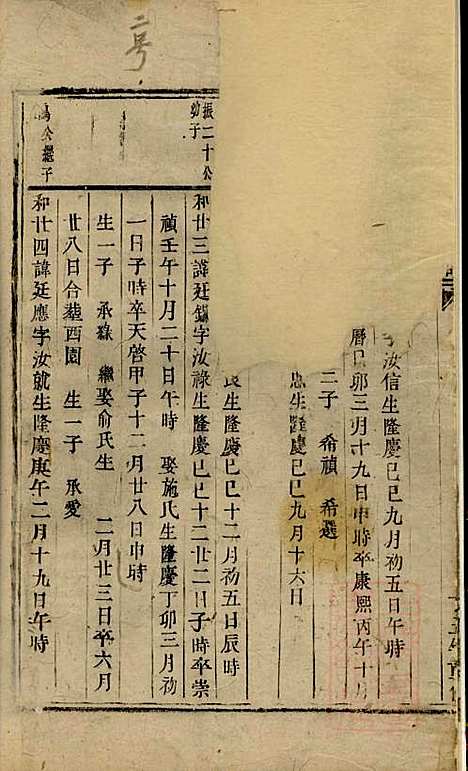 汝信生隆慶己巳九月初五日午時
曆己卯三月十九日申時卒康熙丙午十月
二子 希禎 希選
忠生隆慶己巳九月十六日
良生隆慶己巳十二月初五日辰時
振二十公
幼子
和廿三諱廷錄字汝祿生隆慶己巳十二廿二日子時卒崇
禎壬午十月二十日午時 娶施氏生隆慶丁卯三月初
一日子時卒天啓甲子十二月廿八日申時
生一子 承祿 繼娶俞氏生 二月廿三日卒六月
廿八日合葬西園 生一子 承愛
公繼子
和廿四諱廷應字汝就生隆慶庚午二月十九日午時
二号